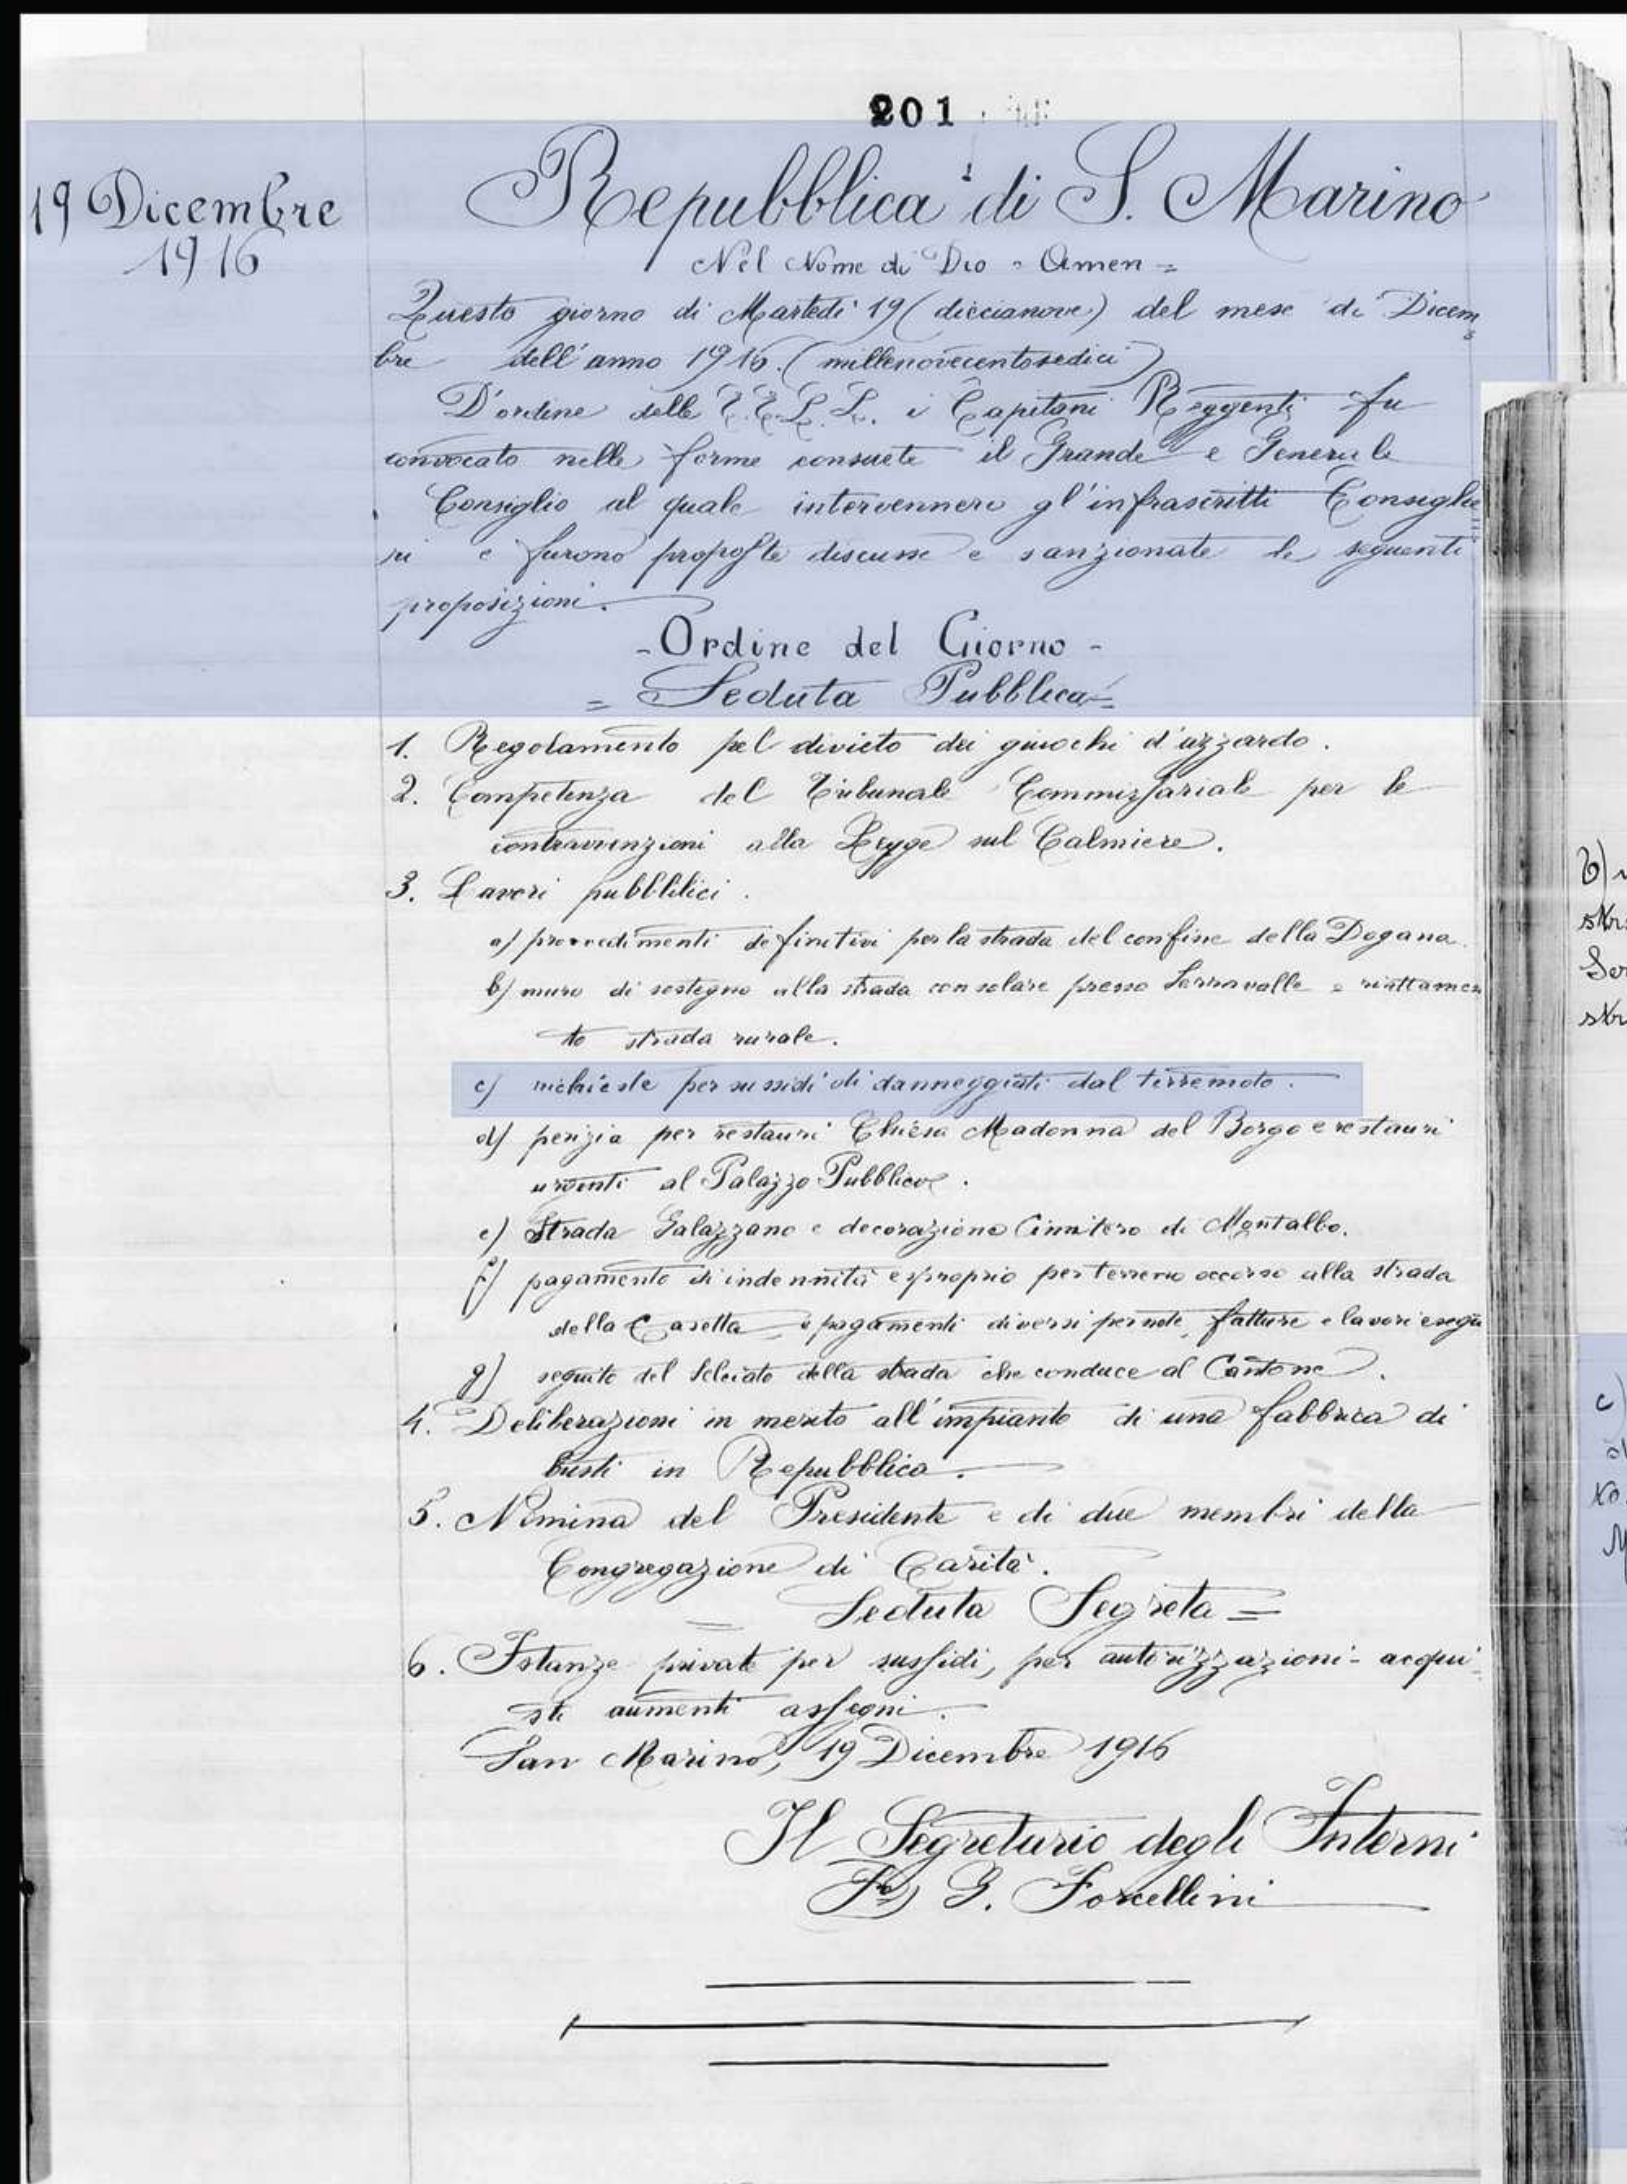 201
19 Dicembre
1916
Repubblica di S. Marino
Nel Nome di Dio - Amen =
Questo giorno di Martedi 19 (diccianove) del mese di Dicem
bre dell'anno 1916. (millenovecentosedici)
D'ordine delle E.E.L.L. i Capitani Reggenti fu
convocato nelle forme consuete il Grande e Generale
Consiglio al quale intervennero gl'infrascritti Consiglie
ri e furono proposte discusse e sanzionate le seguenti
proposizioni.
- Ordine del Giorno -
= Seduta Pubblica =
1. Regolamento pel divieto dei giuochi d'azzardo.
2. Competenza del Tribunale Commissariale per le
contravvenzioni alla Legge sul Calmiere.
3. Lavori pubblilici.
a) provvedimenti definitivi per la strada del confine della Dogana.
b) muro di sostegno alla strada consolare presso Serravalle e riattamen
to strada rurale.
c) richieste per sussidi di danneggiati dal terremoto.
d) perizia per restauri Chiesa Madonna del Borgo e restauri
urgenti al Palazzo Pubblico.
e) Strada Galazzano e decorazione Cimitero di Montalbo.
f) pagamento di indennità esproprio per terreno occorso alla strada
della Casetta e pagamenti diversi per note, fatture e lavori esegu
g) seguito del Selciato della strada che conduce al Cantone.
4. Deliberazioni in merito all'impianto di una fabbrica di
busti in Repubblica.
5. Nomina del Presidente e di due membri della
Congregazione di Carità.
= Seduta Segreta =
6. Istanze private per sussidi, per autorizzazioni - acqui
sti aumenti assegni.
San Marino, 19 Dicembre 1916
Il Segretario degli Interni
Fto G. Forcellini
b)
Ser
c)